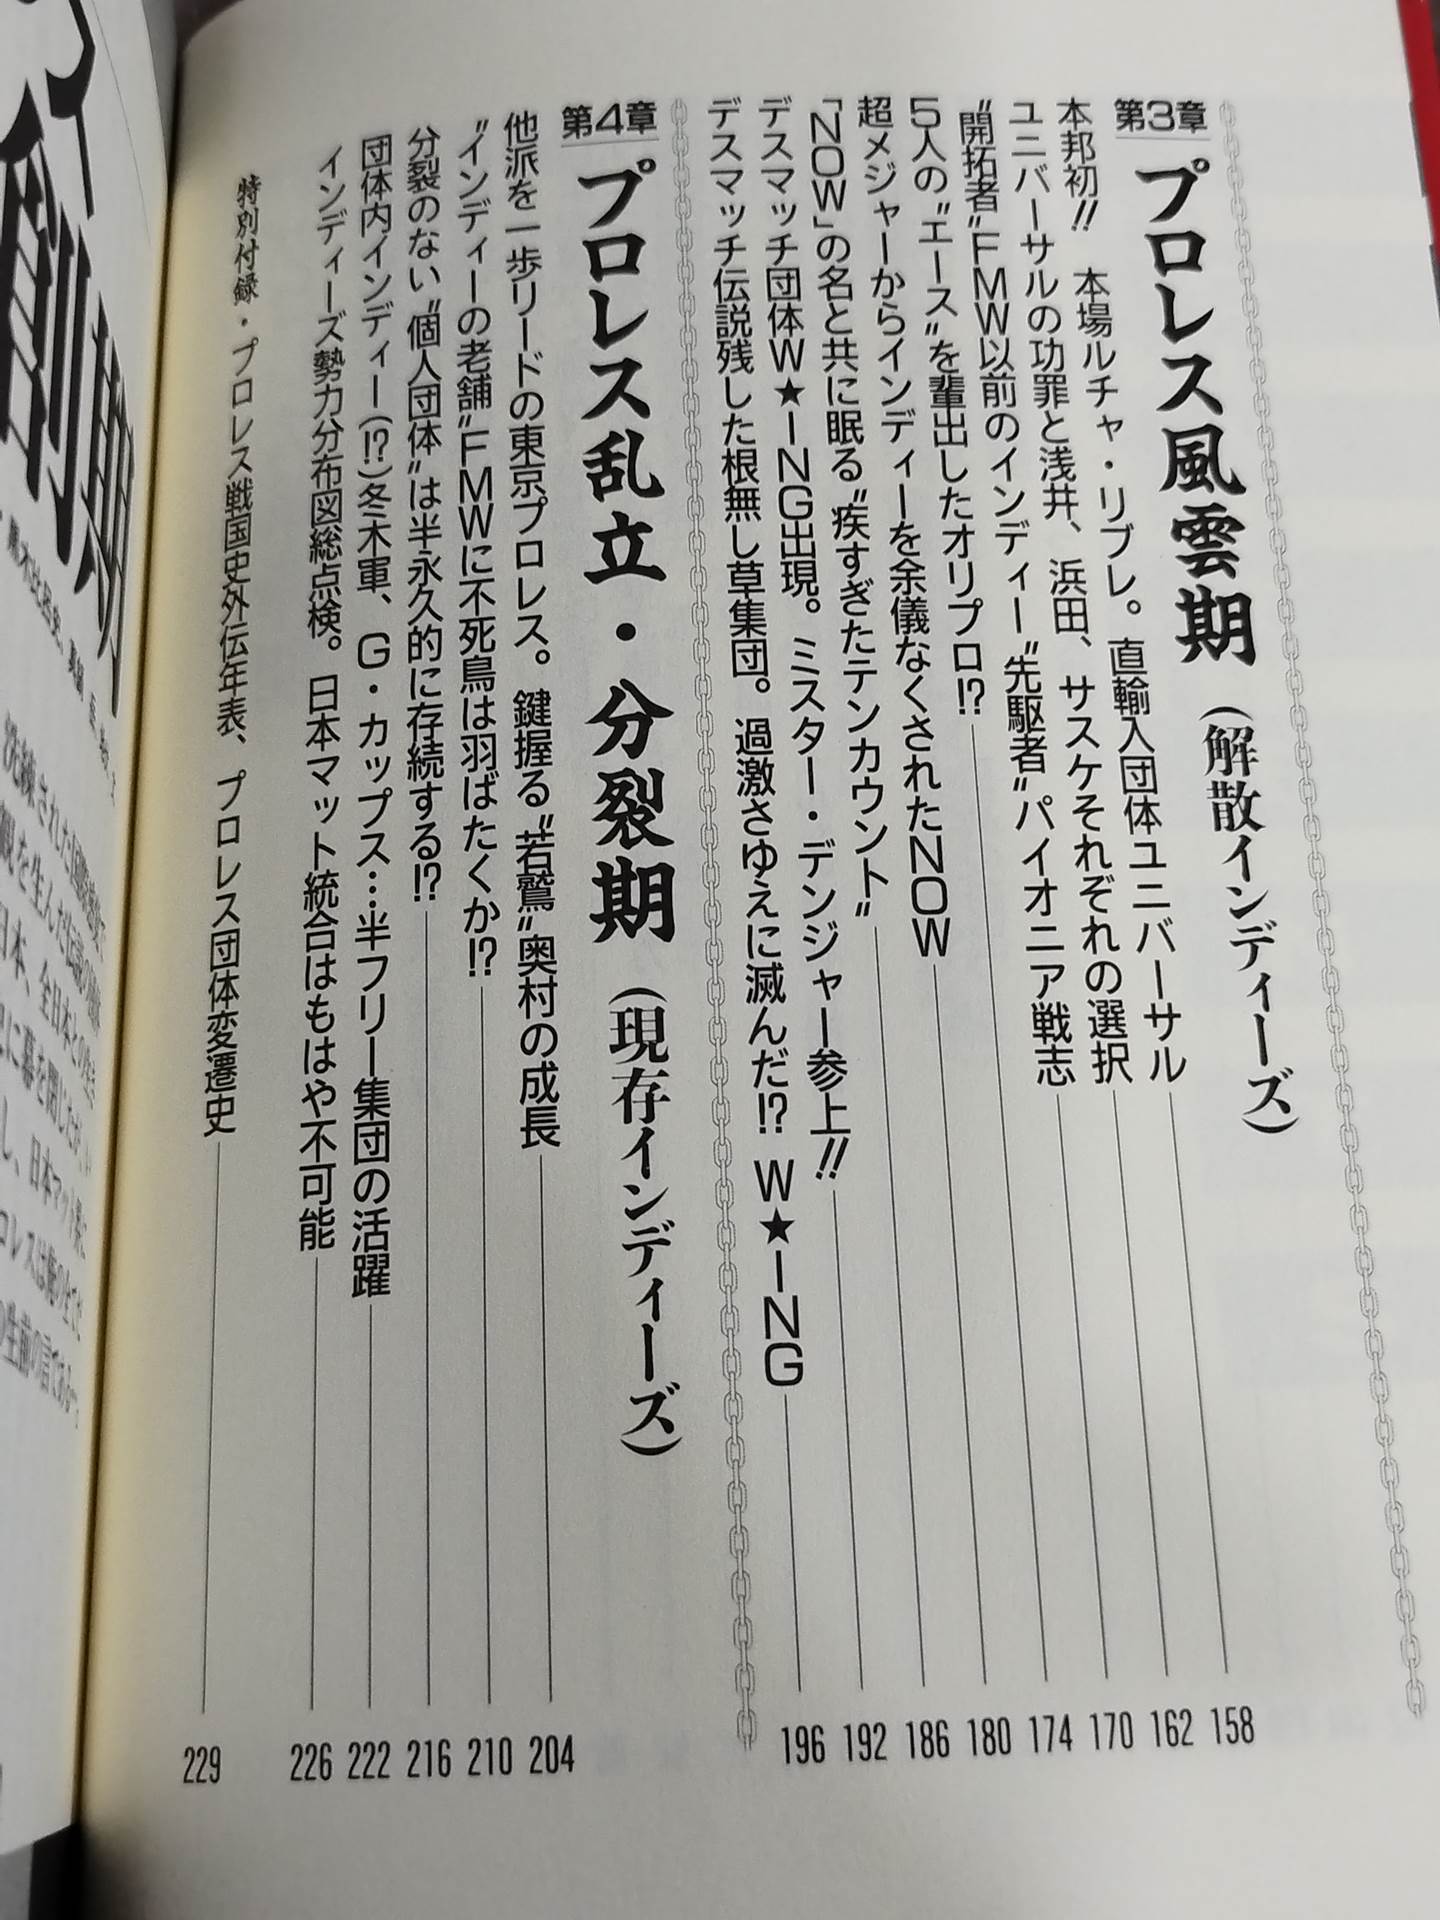 第3章 プロレス風雲期（解散インディーズ）
本邦初!! 本場ルチャ・リブレ。直輸入団体ユニバーサル 158
ユニバーサルの功罪と浅井、浜田、サスケそれぞれの選択 162
“開拓者”FMW以前のインディー“先駆者”パイオニア戦志 170
5人の“エース”を輩出したオリプロ!? 174
超メジャーからインディーを余儀なくされたNOW 180
「NOW」の名と共に眠る“疾すぎたテンカウント” 186
デスマッチ団体W★ING出現。ミスター・デンジャー参上!! 192
デスマッチ伝説残した根無し草集団。過激さゆえに滅んだ!? W★ING 196
第4章 プロレス乱立・分裂期（現存インディーズ）
他派を一歩リードの東京プロレス。鍵握る“若鷲”奥村の成長 204
“インディーの老舗”FMWに不死鳥は羽ばたくか!? 210
分裂のない“個人団体”は半永久的に存続する!? 216
団体内インディー(!?)冬木軍、G・カップス…半フリー集団の活躍 222
インディーズ勢力分布図総点検。日本マット統合はもはや不可能 226
特別付録・プロレス戦国史外伝年表、プロレス団体変遷史 229
創期